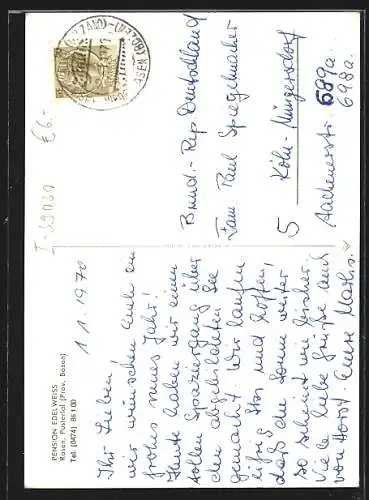 PENSION EDELWEISS
Rasen, Pustertal (Prov. Bozen)
Tel. (0474) 86100
1.1.1970
Ihr Lieben
wir wünschen Euch ein
frohes neues Jahr!
Heute haben wir einen
tollen Spaziergang über
den See
gemacht. Wir laufen
eifrig Ski und hoffen,
daß die Sonne weiter
so scheint wie bisher.
Viele liebe Grüße auch
von Horst Eure
Bund.-Rep Deutschland
Fam Paul Spiegelmacher
5 Köln-Müngersdorf
Aachenerstr. 689a
698a
€6.-
I-39030
(BOLZANO)
(BOZEN)